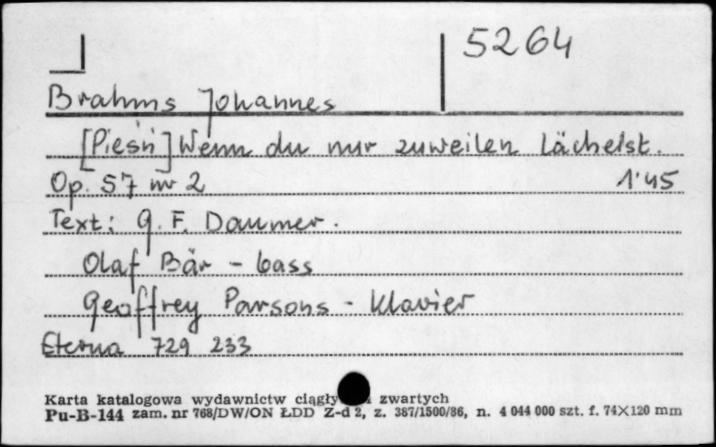 5264
Brahms Johannes
[Pieśń] Wenn du nur zuweilen lächelst.
Op. 57 nr 2 1'45
Text: G. F. Daumer.
Olaf Bär - bass
Geoffrey Parsons - Klavier
Eterna 729 233
Karta katalogowa wydawnictw ciągły zwartych
Pu-B-144 zam. nr 768/DW/ON ŁDD Z-d 2, z. 387/1500/86, n. 4 044 000 szt. f. 74×120 mm